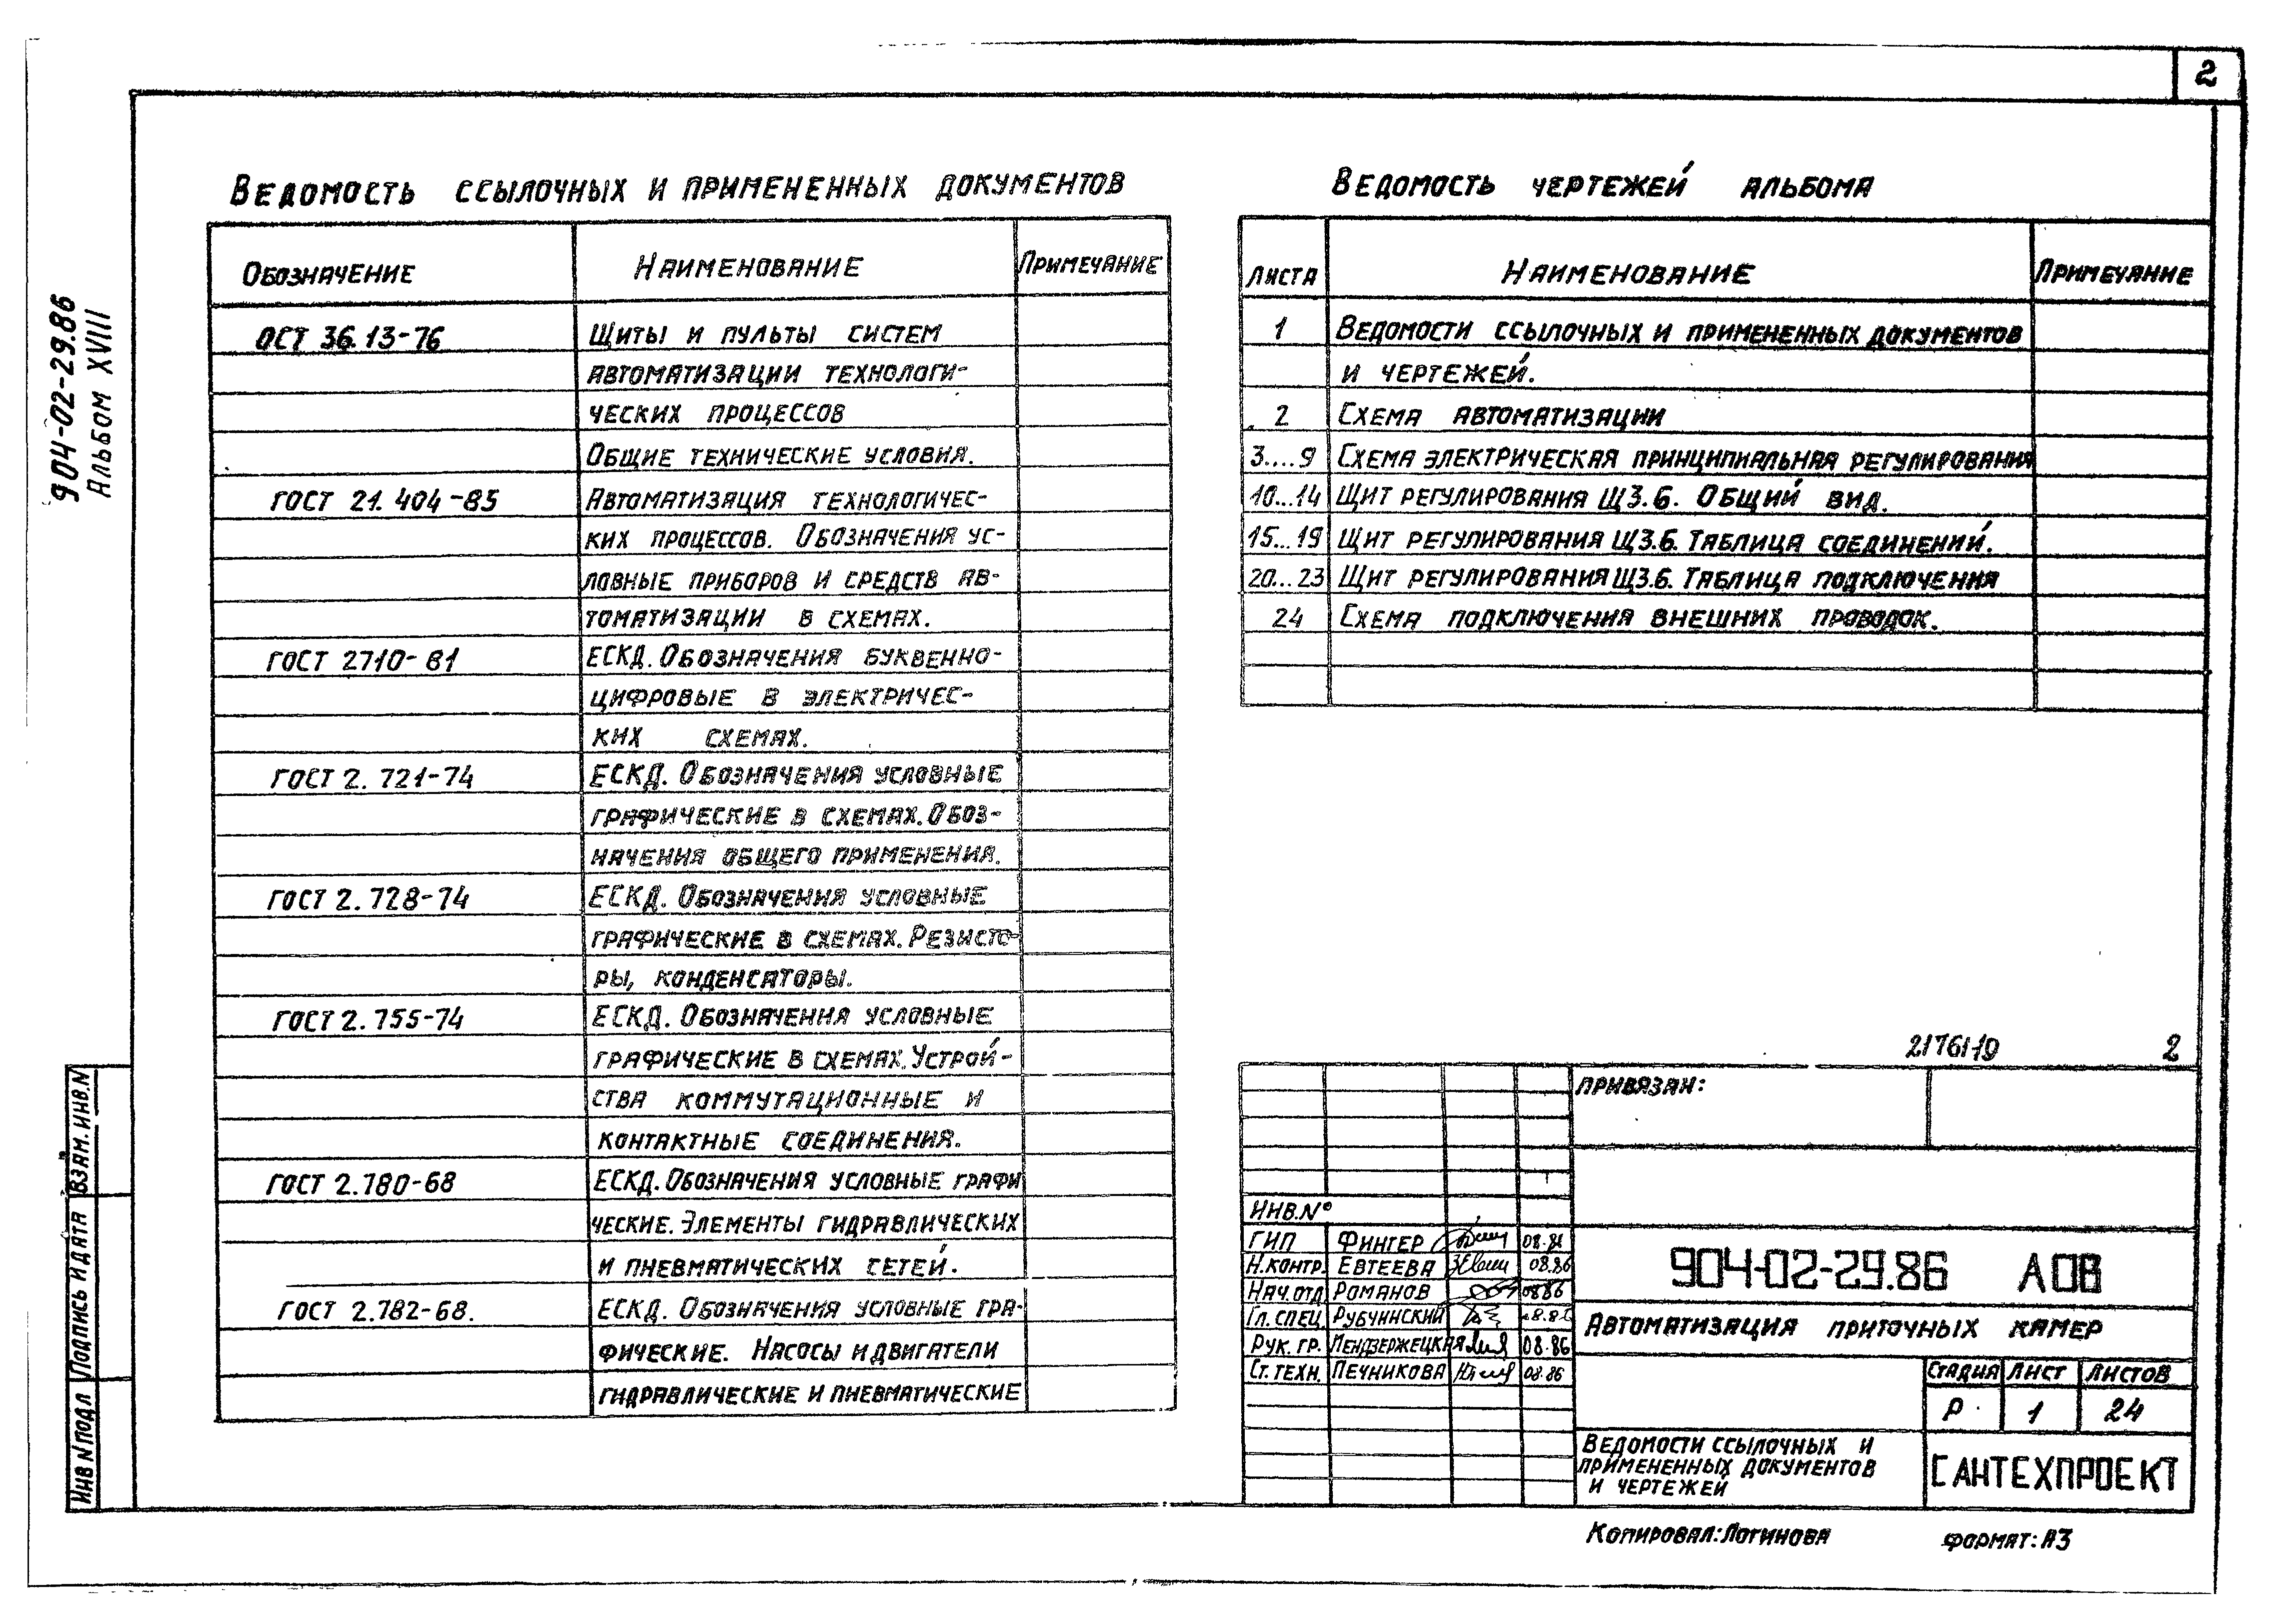 2
904-02-29.86
Альбом XVIII
Ведомость ссылочных и примененных документов
Обозначение Наименование Примечание
ОСТ 36.13-76 Щиты и пульты систем
автоматизации технологи-
ческих процессов
Общие технические условия.
ГОСТ 21.404-85 Автоматизация технологичес-
ких процессов. Обозначения ус-
ловные приборов и средств ав-
томатизации в схемах.
ГОСТ 2710-81 ЕСКД. Обозначения буквенно-
цифровые в электричес-
ких схемах.
ГОСТ 2.721-74 ЕСКД. Обозначения условные
графические в схемах. Обоз-
начения общего применения.
ГОСТ 2.728-74 ЕСКД. Обозначения условные
графические в схемах. Резисто-
ры, конденсаторы.
ГОСТ 2.755-74 ЕСКД. Обозначения условные
графические в схемах. Устрой-
ства коммутационные и
контактные соединения.
ГОСТ 2.780-68 ЕСКД. Обозначения условные графи
ческие. Элементы гидравлических
и пневматических сетей.
ГОСТ 2.782-68. ЕСКД. Обозначения условные гра-
фические. Насосы и двигатели
гидравлические и пневматические
Ведомость чертежей альбома
Листа Наименование Примечание
1 Ведомости ссылочных и примененных документов
и чертежей.
2 Схема автоматизации
3....9 Схема электрическая принципиальная регулирования
10...14 Щит регулирования ЩЗ.6. Общий вид.
15...19 Щит регулирования ЩЗ.6. Таблица соединений.
20...23 Щит регулирования ЩЗ.6. Таблица подключения
24 Схема подключения внешних проводок.
21761-19 2
Привязан:
Инв.N°
ГИП Фингер
Н.контр. Евтеева 08.86
Нач.отд Романов 0886
Гл.спец Рубчинский
Рук.гр. Мендзержецкая 08.86
Ст.техн. Печникова 08.86
904-02-29.86 АОВ
Автоматизация приточных камер
Стадия Лист Листов
Р 1 24
Ведомости ссылочных и
примененных документов
и чертежей
САНТЕХПРОЕКТ
Взам.инв.N
Подпись и дата
Инв N подл
Копировал: Логинова формат: А3